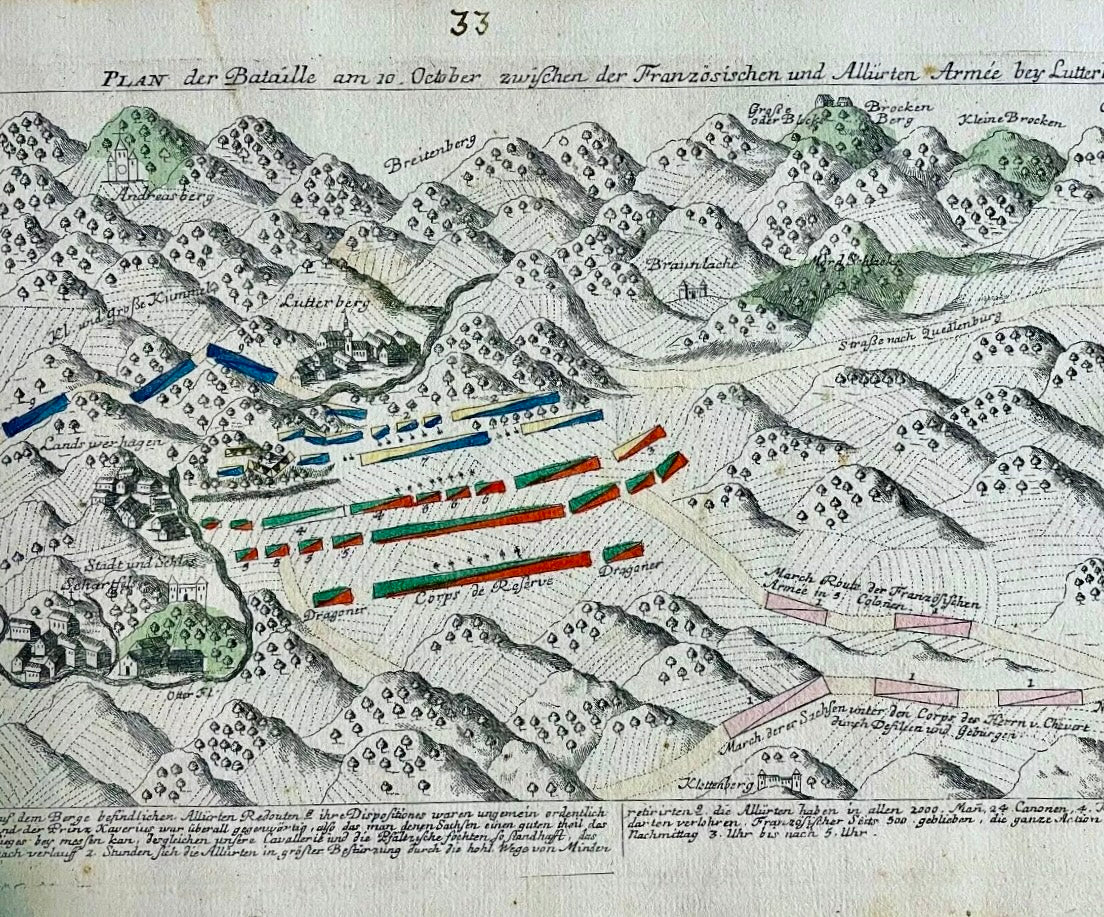 33
PLAN der Bataille am 10. October zwischen der Französischen und Alliirten Armée bey Lutter
Große oder Blocks
Brocken Berg
Kleine Brocken
Breitenberg
Andreasberg
Braunlache
Kl. und große Kummel
Lutterberg
Straße nach Quedlenburg
9
9
2
7
3
Landwerhagen
4
4
6
6
5
5
5
5
Stadt und Schlos
Schartfels
Dragoner
Corps de Reserve
Dragoner
March Route der Französischen
Armée in 5. Colonen
Otter Fl.
1
1
1
March derer Sachsen unter den Corps des Herrn v. Chevert
durch Defilsen und Gebürgen
Klettenberg
uf dem Berge befindlichen Alliirten Redouten & ihre Dispositiones waren ungemein ordentlich
nd der Prinz Xaverius war überall gegenwärtig, also das man denen Sachsen einen guten theil das
ieges bey messen kan, desgleichen unsere Cavallerie und die Pfältzische fochten so standhaft, das
ach verlauff 2. Stunden sich die Alliirten in gröster Bestürzung durch die hohl Wege von Minden
retirirten & die Alliirten haben in allen 2000. Man, 24 Canonen, 4.
darten verloren. Französischer Seits 500. geblieben, die ganze Action
Nachmittag 3. Uhr bis nach 5. Uhr.